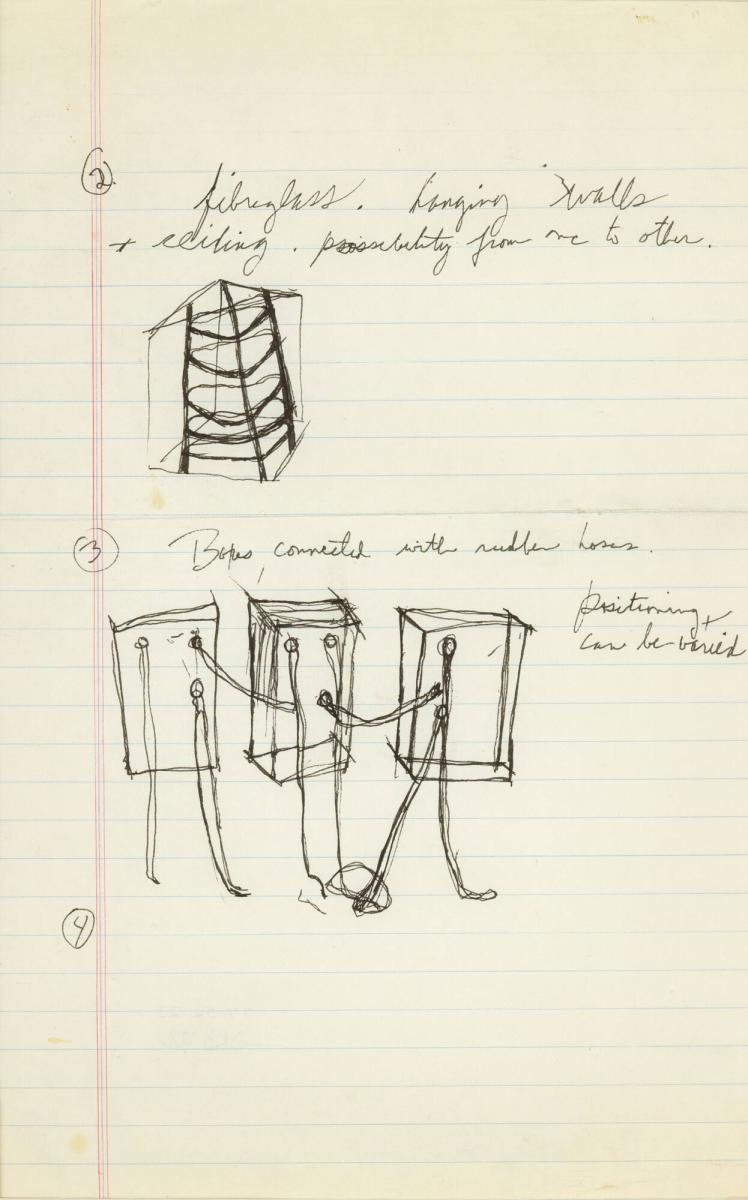 ②
fibreglass. hanging 3 walls
+ ceiling. possibility from one to other.
③ Boxes, connected with rubber hoses.
positioning
can be varied
④